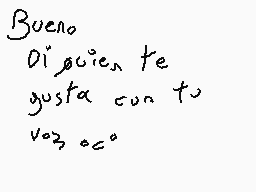 Bueno
Di quien te
gusta con tu
voz °c°